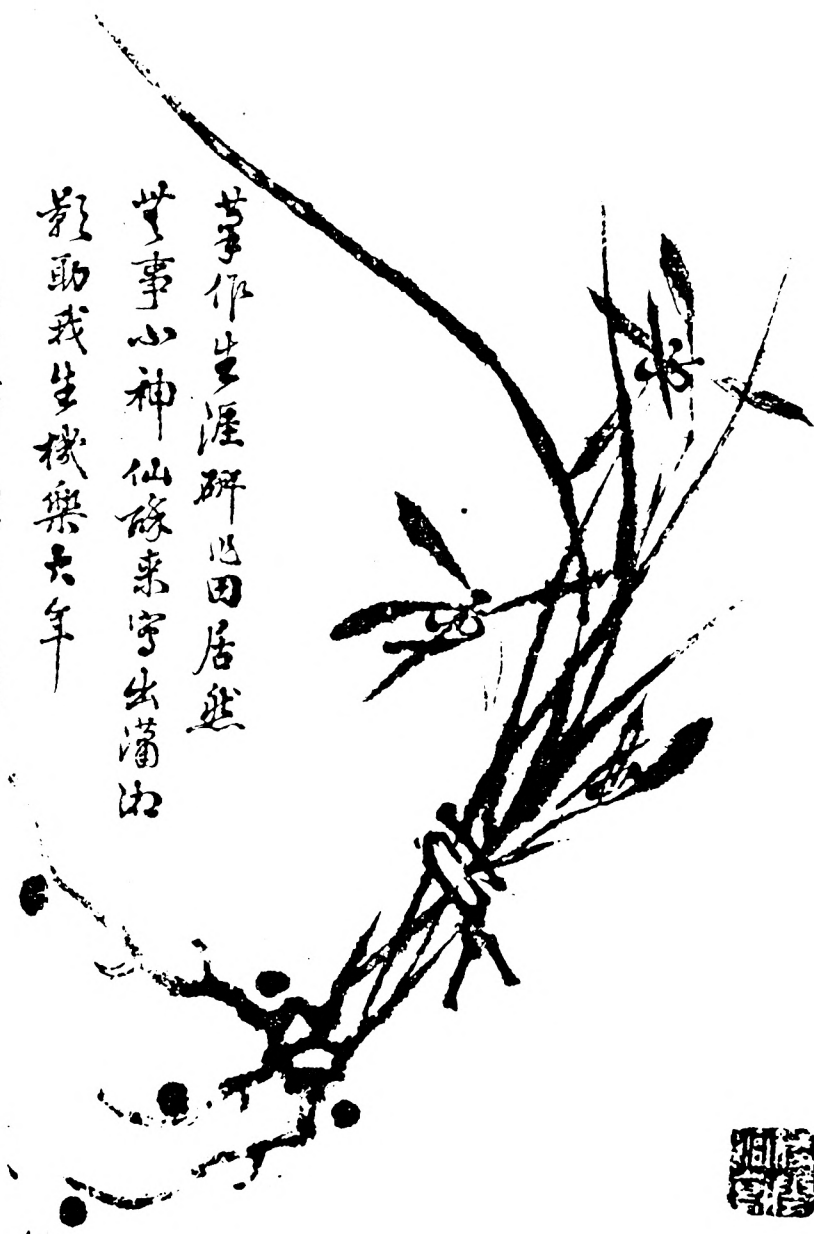 筆作生涯硯作田居然
無事小神仙酴来寫出瀟湘
影助我生機樂大年